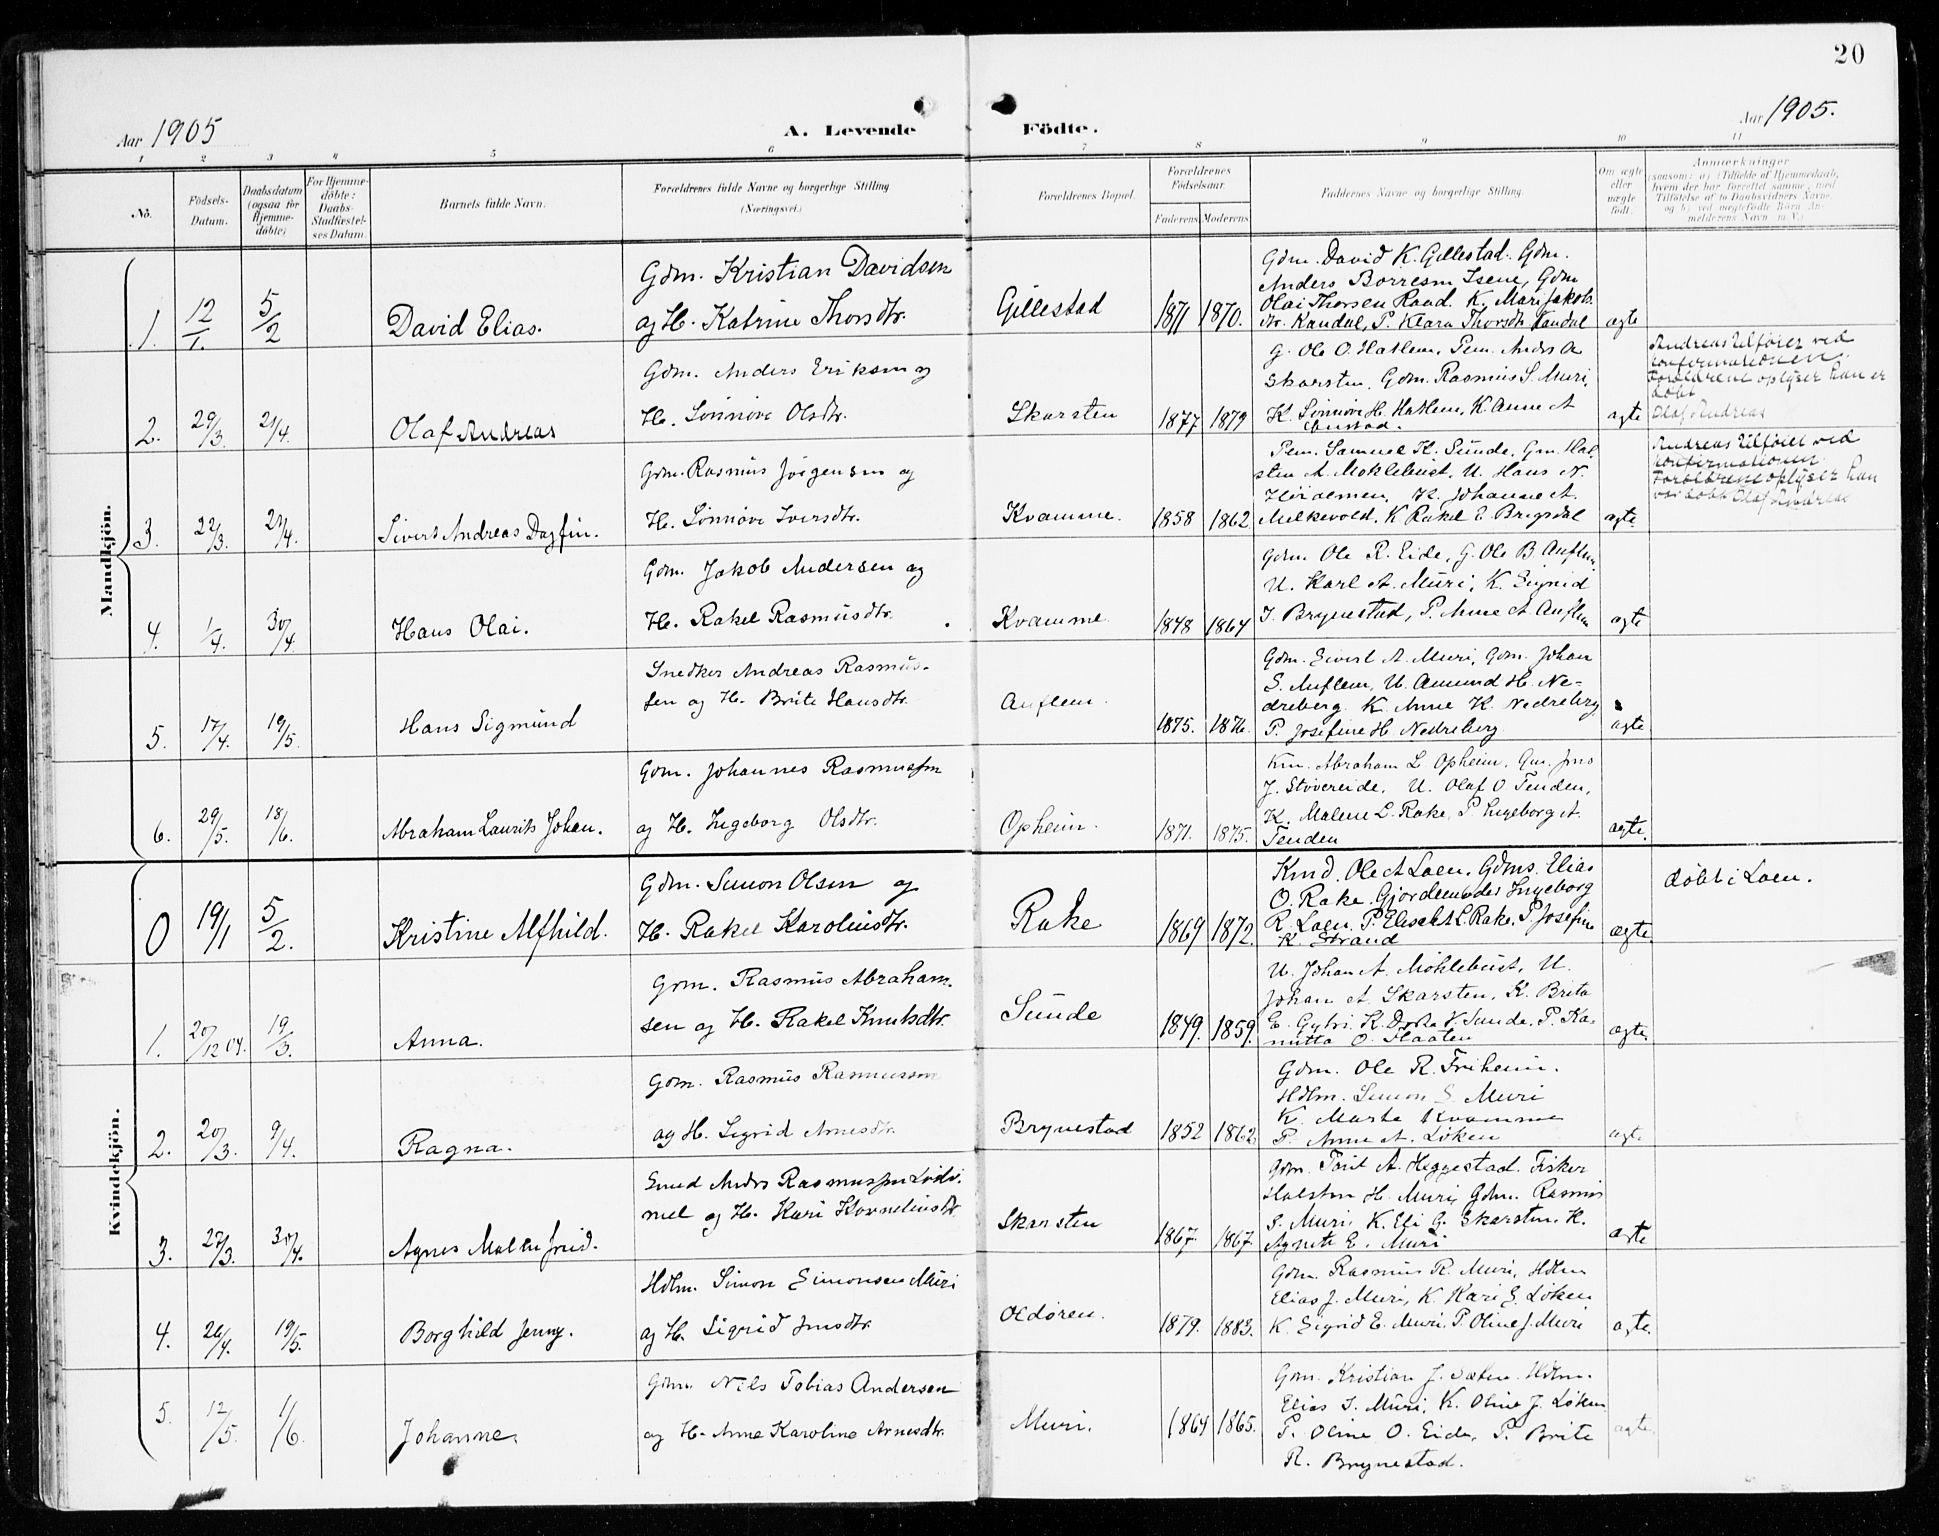 20
Aar 1905
A. Levende Födte.
Aar 1905.
1 2 3 4 5 6 7 8 9 10 11
No.
Födsels-
Datum.
Daabsdatum
(ogsaa for
Hjemme-
döbte)
For Hjemme-
döbte:
Daabs-
Stadfæstel-
ses Datum.
Barnets fulde Navn.
Forældrenes fulde Navne og borgerlige Stilling
(Næringsvei.)
Forældrenes Bopæl.
Forældrenes
Födselsaar.
Faderens Moderens
Faddernes Navne og borgerlige Stilling.
Om ægte
eller
uægte
födt.
Anmærkninger
(saasom: a) i Tilfælde af Hjemmedaab,
hvem der har forrettet samme, med
Tilföielse af to Daabsvidners Navne,
og b) ved uægtefödte Börn An-
melderens Navn m. V.)
Mandkjön.
1. 12/1. 5/2 David Elias.
Gdm. Kristian Davidsen
og H. Katrine Thorsdtr.
Gillestad 1871 1870.
Gdm. David K. Gillestad. Gdm.
Anders Borresen Isene, Gdm
Olai Thorsen Raad. K. Mari Jakob.
dtr. Kandal, P. Klara Thorsdtr Kandal
ægte
2. 29/3. 21/4. Olaf Andreas
Gdm. Anders Eriksen og
H. Sønnøve Olsdtr.
Skarsten 1877 1879
G. Ole O. Hatlem. Pem. Andrs A
Skarsten, Gdm. Rasmus S. Muri,
K. Sønnøve H. Hatlem, K. Anne A
ægte
Andreas tilføiet ved
konfirmationen.
Forældrene oplyser han er
døbt
Olaf Andreas
3. 22/3. 21/4. Sivert Andreas Dagfin.
Gdm. Rasmus Jørgensen og
H. Sønnøve Iversdtr.
Kvamme. 1858 1862
Pem. Samuel K. Sunde, Gm. Hal
sten A. Mohlebust, U. Hans N.
K. Johanne A.
Melkevold. K Rakel E. Brigsdal
ægte
Andreas tilføiet ved
konfirmationen.
Forældrene oplyser han
var døbt Olaf Andreas
4. 1/4. 30/4. Hans Olai.
Gdm. Jakob Andersen og
H. Rakel Rasmusdtr.
Kvamme. 1848 1864
Gdm. Ole R. Eide, G. Ole B. Auflem,
U. Karl A. Muri, K. Sigrid
J. Brynestad, P. Anne A Auflem
ægte
5. 17/4. 19/5. Hans Sigmund
Snedker Andreas Rasmus-
sen og H. Brite Hansdtr.
Auflem. 1875. 1876.
Gdm. Sivert A. Muri, Gdm. Johan
S. Auflem, U. Amund H. Ne-
dreberg. K. Anne K. Nedreberg
P. Josefine H. Nedreberg
ægte
6. 29/5. 18/6. Abraham Laurits Johan.
Gdm. Johannes Rasmussen
og H. Ingeborg Olsdtr.
Opheim. 1871. 1875.
Km. Abraham L Opheim. Gm. Jens
J. Støvereide, U. Olaf O. Tenden,
K. Malene L. Rake, P. Ingeborg A.
Tenden
ægte.
Kvindekjön.
0 19/1 5/2. Kristine Alfhild.
Gdm. Simon Olsen og
H. Rakel Karolinsdtr.
Rake 1869 1872.
Kmd. Ole A Loen, Gdms. Elias
O. Rake. Gjordemoder Ingeborg
R. Loen. P. Elisabet L. Rake. P. Josefine
K. Strand
ægte.
døbt i Loen.
1. 20/12 04. 19/3. Anna.
Gdm. Rasmus Abraham-
sen og H. Rakel Knutsdtr.
Sunde 1849. 1859.
U. Johan A. Mohlebust, U.
Johan A. Skarsten, K. Brita
E. Gytri. K. Dorte K. Sunde, P. Ka-
mitta O. Haaten
ægte.
2. 20/3. 9/4. Ragna.
Gdm. Rasmus Rasmussen
og H. Sigrid Arnesdtr.
Brynestad 1852 1862.
Gdm. Ole R. Friheim.
Hdlm. Simon S. Muri
K. Marte Kvamme
P. Anne A. Løken
ægte
3. 27/3. 30/4. Agnes Malene Jensd.
Smed Andrs Rasmussen
mel og H. Kari Kornelinsdtr
Skarsten 1867. 1867.
Gdm. Taril A. Heggestad. Fisker
Halsten H. Muri, Gdm. Rasmus
S. Muri. K. Eli G. Skarsten. K.
Agnete E. Muri
ægte
4. 26/4. 19/5. Borghild Jenny.
Hdlm. Simon Simonsen Muri
og H. Sigrid Jensdtr
Oldøren. 1879. 1883.
Gdm. Rasmus R. Muri, Hdlm
Elias J. Muri, K. Kari S. Løken
K. Sigrid E. Muri. P. Oline J. Muri
ægte.
5. 12/5. 11/6. Johanne.
Gdm. Nils Tobias Andersen
og H. Anne Karoline Arnesdtr.
Muri. 1864 1865.
Gdm. Kristian J. Sæten. Hdlm.
Elias S. Muri, K. Oline J. Løken
P. Oline O. Eide, P. Brite
R. Brynestad.
ægte.